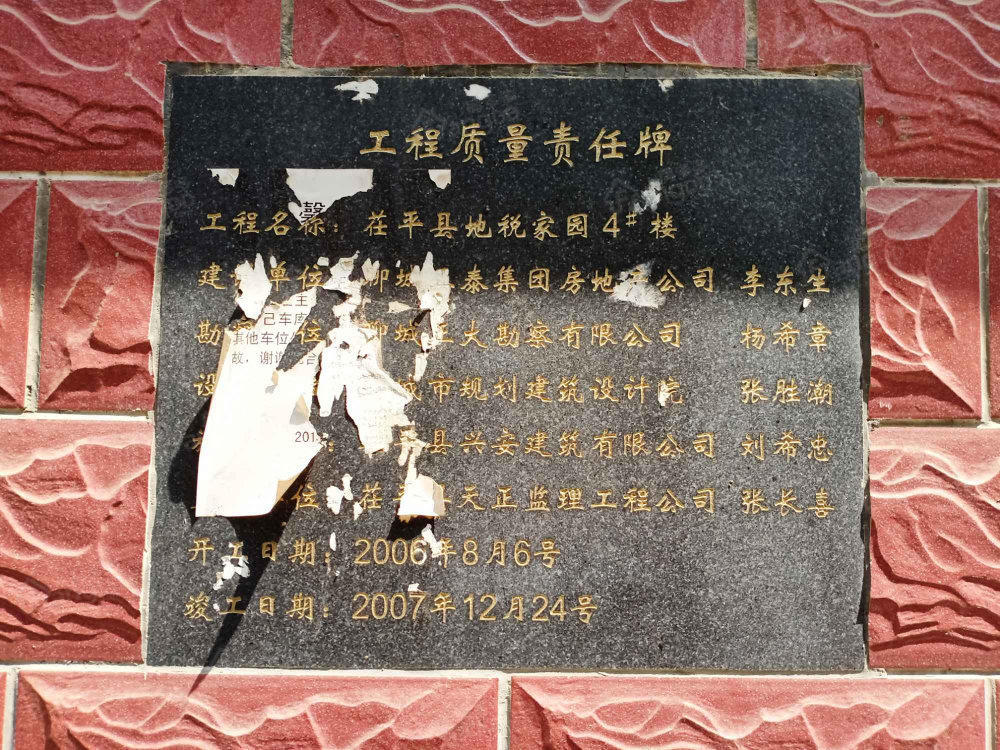 工程质量责任牌
工程名称：茌平县地税家园4#楼
建 单位 城 泰集团房地 公司 李东生
勘 位 城 大勘察有限公司 杨希章
设 城市规划建筑设计院 张胜潮
县兴安建筑有限公司 刘希忠
位：茌平县天正监理工程公司 张长喜
开工日期：2006年8月6号
竣工日期：2007年12月24号
馨
主
己车库
其他车位
故，谢谢 合
201